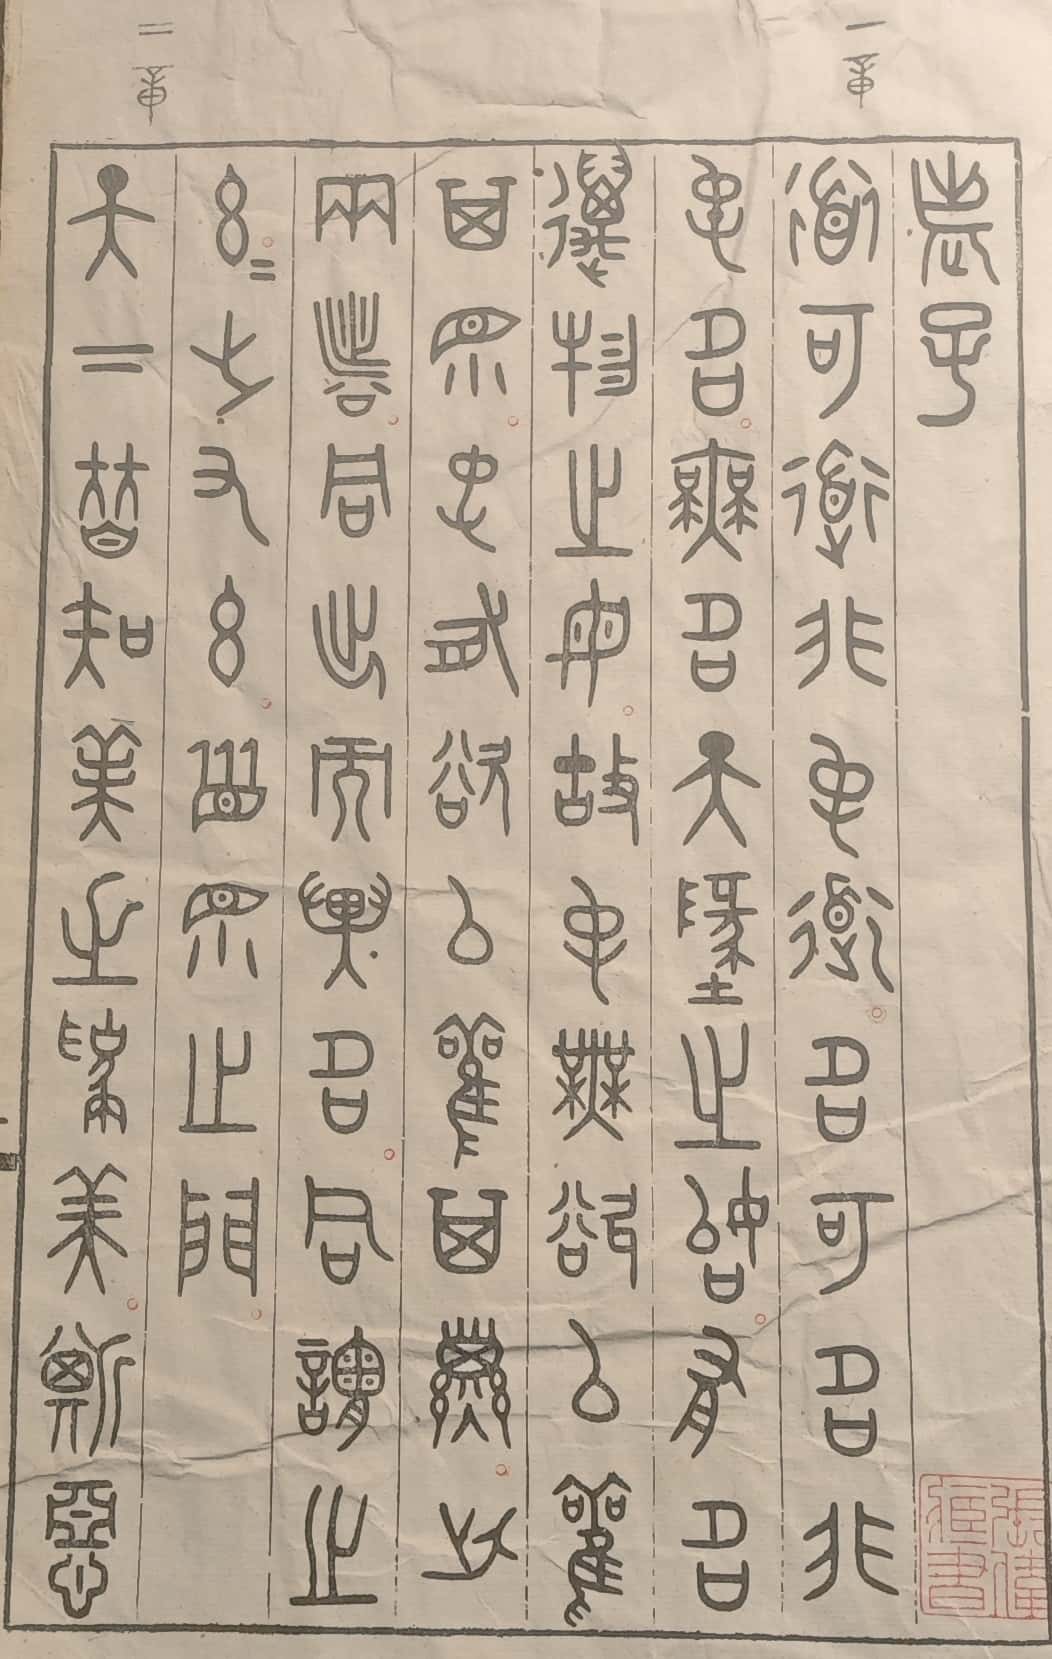 一章
二章
老子
道可道非常道名可名非
常名無名天地之始有名
萬物之母故常無欲以觀
其眇常有欲以觀其徼此
兩者同出而異名同謂之
玄=之又玄眾眇之門
天下皆知美之為美斯惡